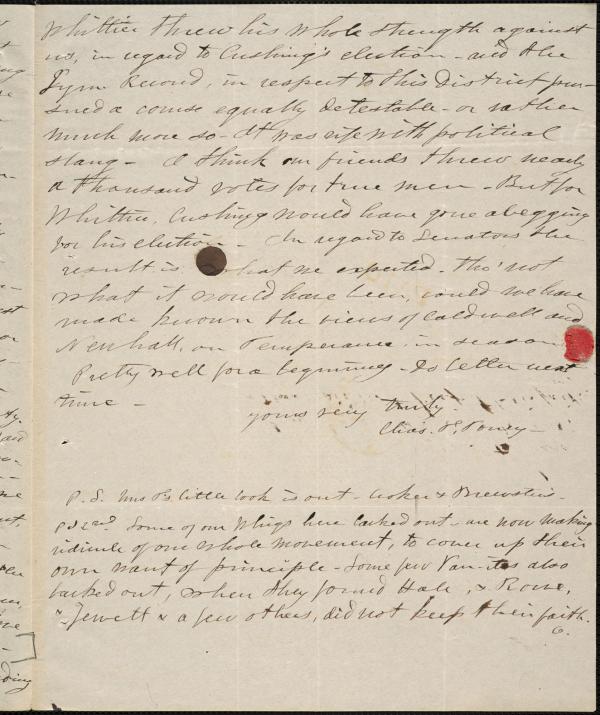 Whittier threw his whole strength against
us, in regard to Cushing's election - and the
Lynn Record, in respect to this District pur-
sued a course equally detestable - or rather
much more so - It was rife with political
slang - I think our friends threw nearly
a thousand votes for true men - But for
Whittier, Cushing would have gone a begging
for his election - In regard to Senators the
result is what we expected - tho' not
what it would have been, could we have
made known the views of Caldwell and
Newhall, on Temperance, in season
Pretty well for a beginning - Do better next
time -
yours very truly
Chas. P.
P. S. Mrs P's little book is out - & Brewster's
Some of our Whigs here backed out - are now making
ridicule of our whole movement, to cover up their
own want of principle - Some few Van-ites also
backed out, when they found Hale, & Rowe,
& Jewett & a few others, did not keep their faith.